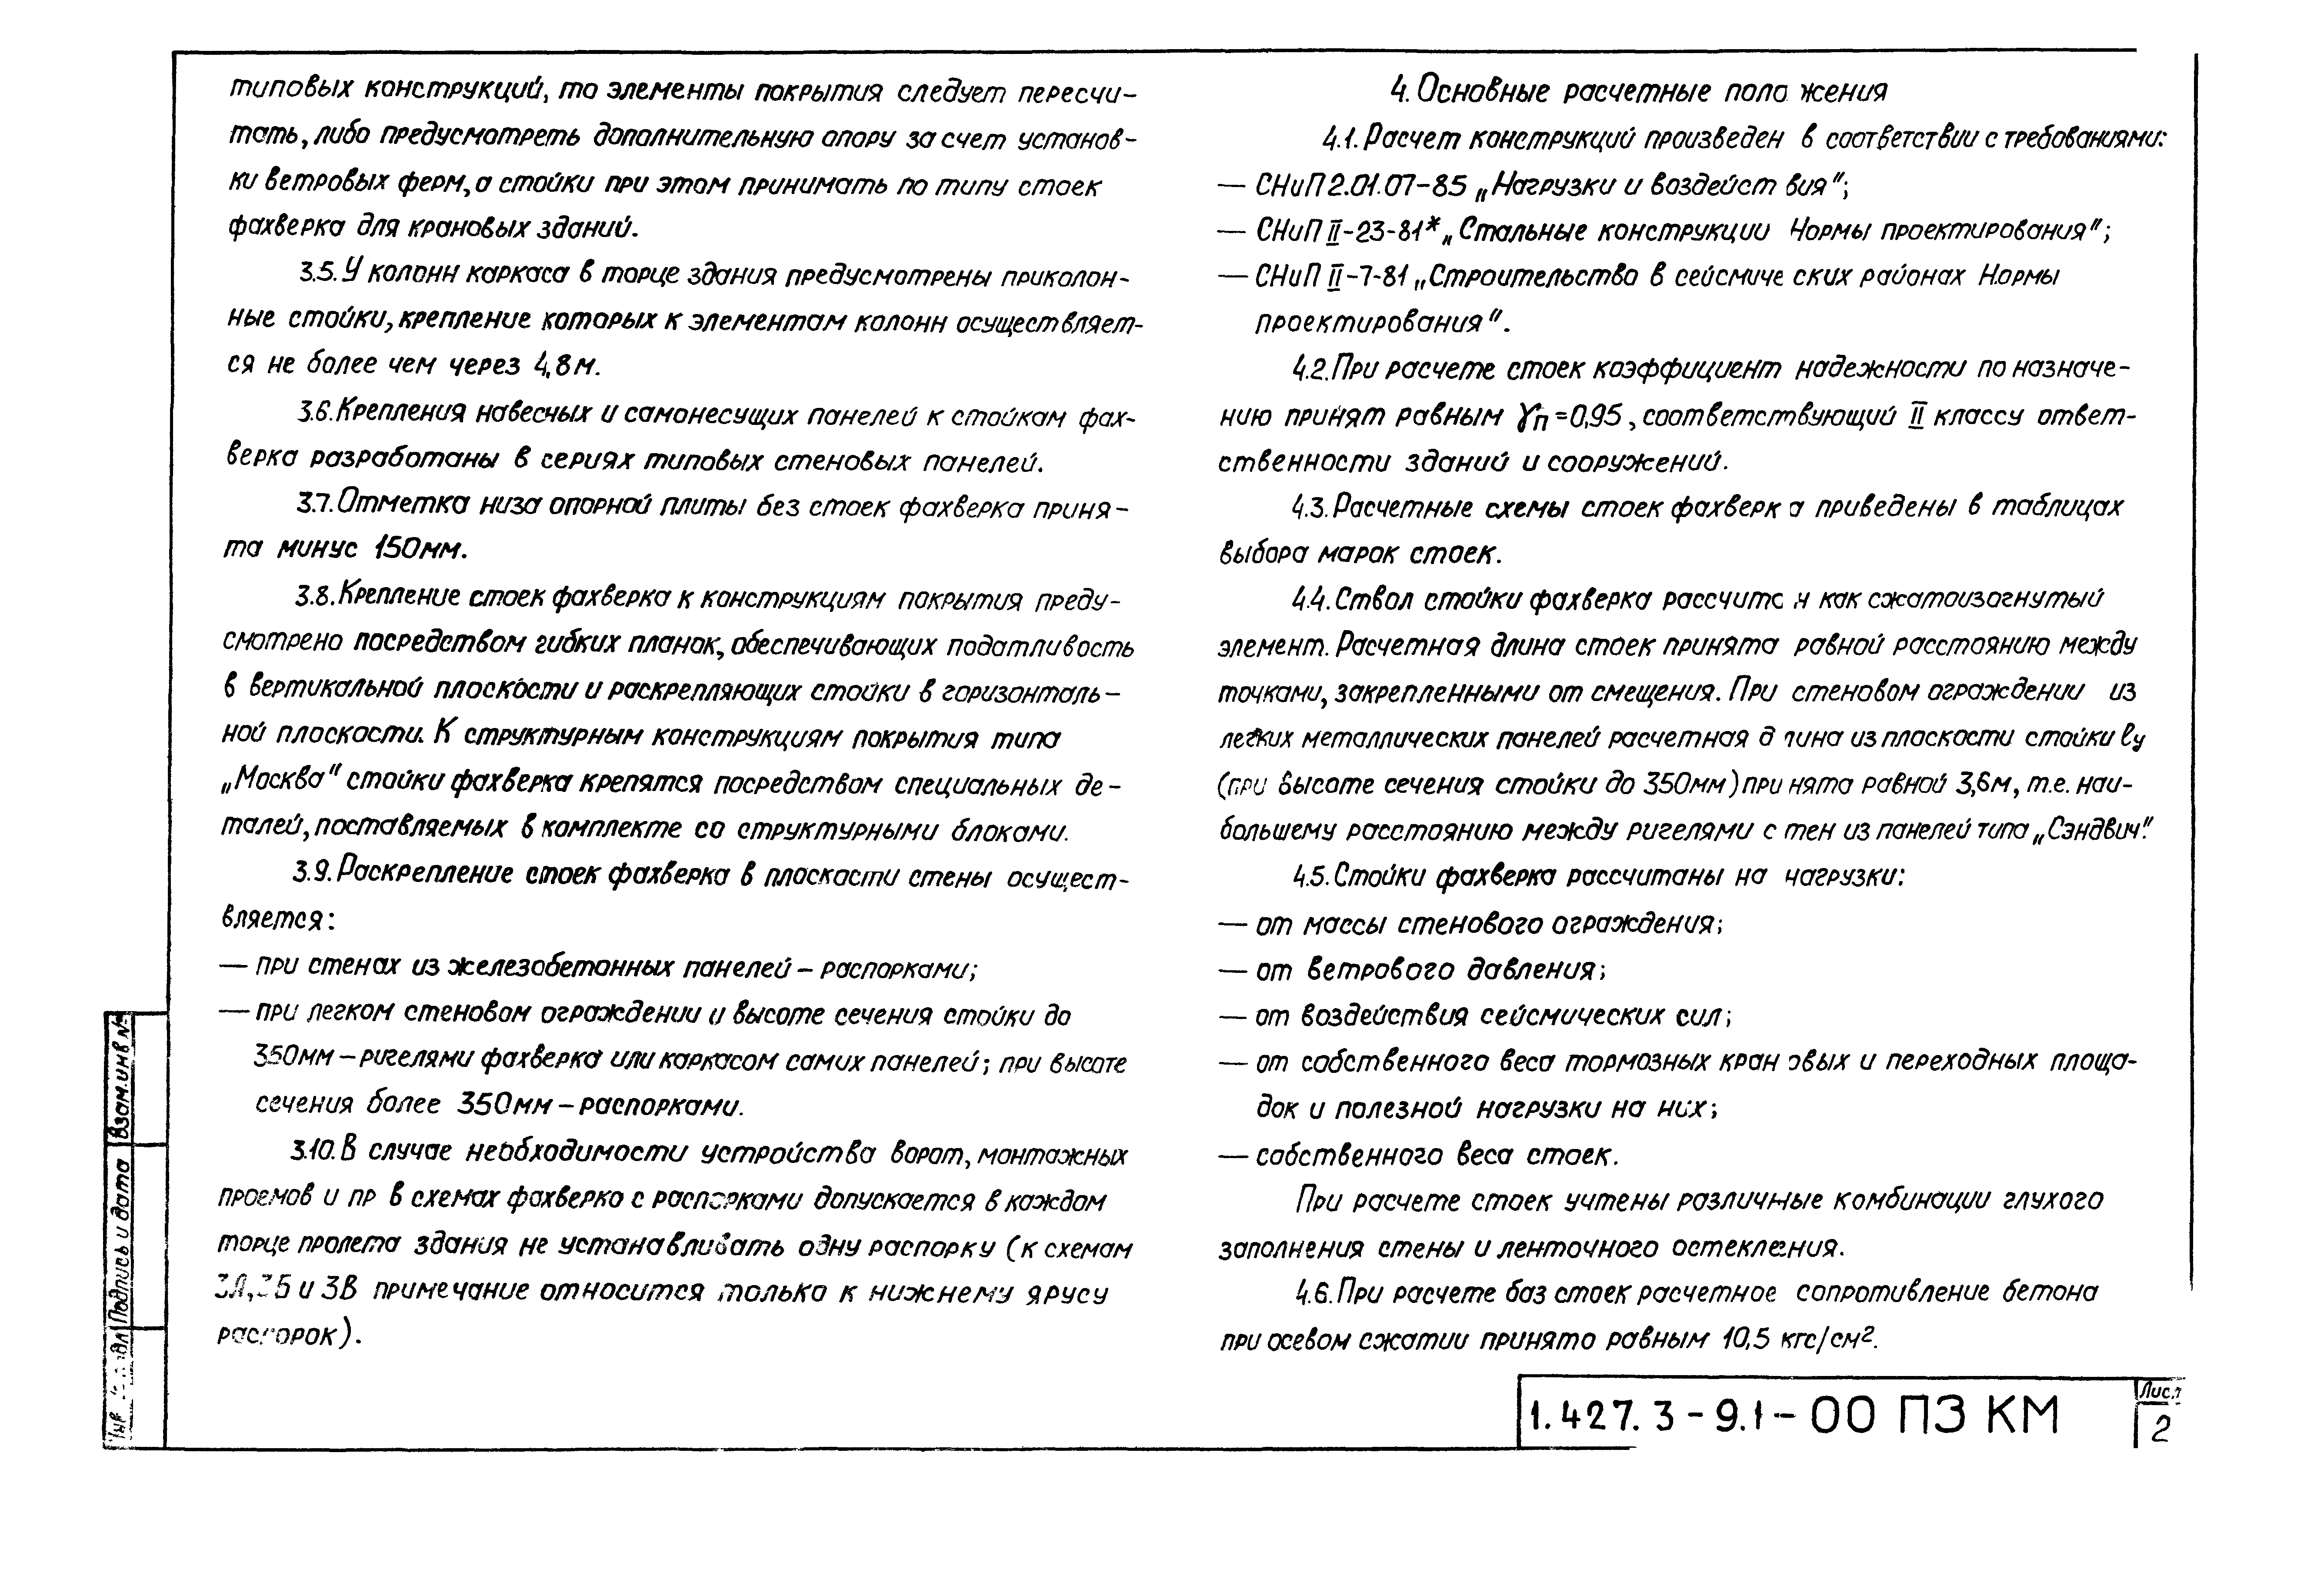 типовых конструкций, то элементы покрытия следует пересчи-
тать, либо предусмотреть дополнительную опору за счет установ-
ки ветровых ферм, а стойки при этом принимать по типу стоек
фахверка для крановых зданий.
3.5. У колонн каркаса в торце здания предусмотрены приколон-
ные стойки, крепление которых к элементам колонн осуществляет-
ся не более чем через 4,8м.
3.6. Крепления навесных и самонесущих панелей к стойкам фах-
верка разработаны в сериях типовых стеновых панелей.
3.7. Отметка низа опорной плиты баз стоек фахверка приня-
та минус 150мм.
3.8. Крепление стоек фахверка к конструкциям покрытия преду-
смотрено посредством гибких планок, обеспечивающих податливость
в вертикальной плоскости и раскрепляющих стойки в горизонталь-
ной плоскости. К структурным конструкциям покрытия типа
„Москва" стойки фахверка крепятся посредством специальных де-
талей, поставляемых в комплекте со структурными блоками.
3.9. Раскрепление стоек фахверка в плоскости стены осущест-
вляется:
— при стенах из железобетонных панелей - распорками;
— при легком стеновом ограждении и высоте сечения стойки до
350мм - ригелями фахверка или каркасом самих панелей; при высоте
сечения более 350мм - распорками.
3.10. В случае необходимости устройства ворот, монтажных
проемов и пр в схемах фахверка с распорками допускается в каждом
торце пролета здания не устанавливать одну распорку (к схемам
3А, 3Б и 3В примечание относится только к нижнему ярусу
распорок).
4. Основные расчетные положения
4.1. Расчет конструкций произведен в соответствии с требованиями:
— СНиП 2.01.07-85 „Нагрузки и воздействия";
— СНиП II-23-81* „Стальные конструкции Нормы проектирования";
— СНиП II-7-81 „Строительство в сейсмических районах Нормы
проектирования".
4.2. При расчете стоек коэффициент надежности по назначе-
нию принят равным γп=0,95, соответствующий II классу ответ-
ственности зданий и сооружений.
4.3. Расчетные схемы стоек фахверка приведены в таблицах
выбора марок стоек.
4.4. Ствол стойки фахверка рассчитан как сжатоизогнутый
элемент. Расчетная длина стоек принята равной расстоянию между
точками, закрепленными от смещения. При стеновом ограждении из
легких металлических панелей расчетная длина из плоскости стойки ly
(при высоте сечения стойки до 350мм) принята равной 3,6м, т.е. наи-
большему расстоянию между ригелями стен из панелей типа „Сэндвич".
4.5. Стойки фахверка рассчитаны на нагрузки:
— от массы стенового ограждения;
— от ветрового давления;
— от воздействия сейсмических сил;
— от собственного веса тормозных крановых и переходных площа-
док и полезной нагрузки на них;
— собственного веса стоек.
При расчете стоек учтены различные комбинации глухого
заполнения стены и ленточного остекления.
4.6. При расчете баз стоек расчетное сопротивление бетона
при осевом сжатии принято равным 10,5 кгс/см².
Взам.инв №
Подпись и дата
1.427.3-9.1-00 ПЗ КМ
Лист
2